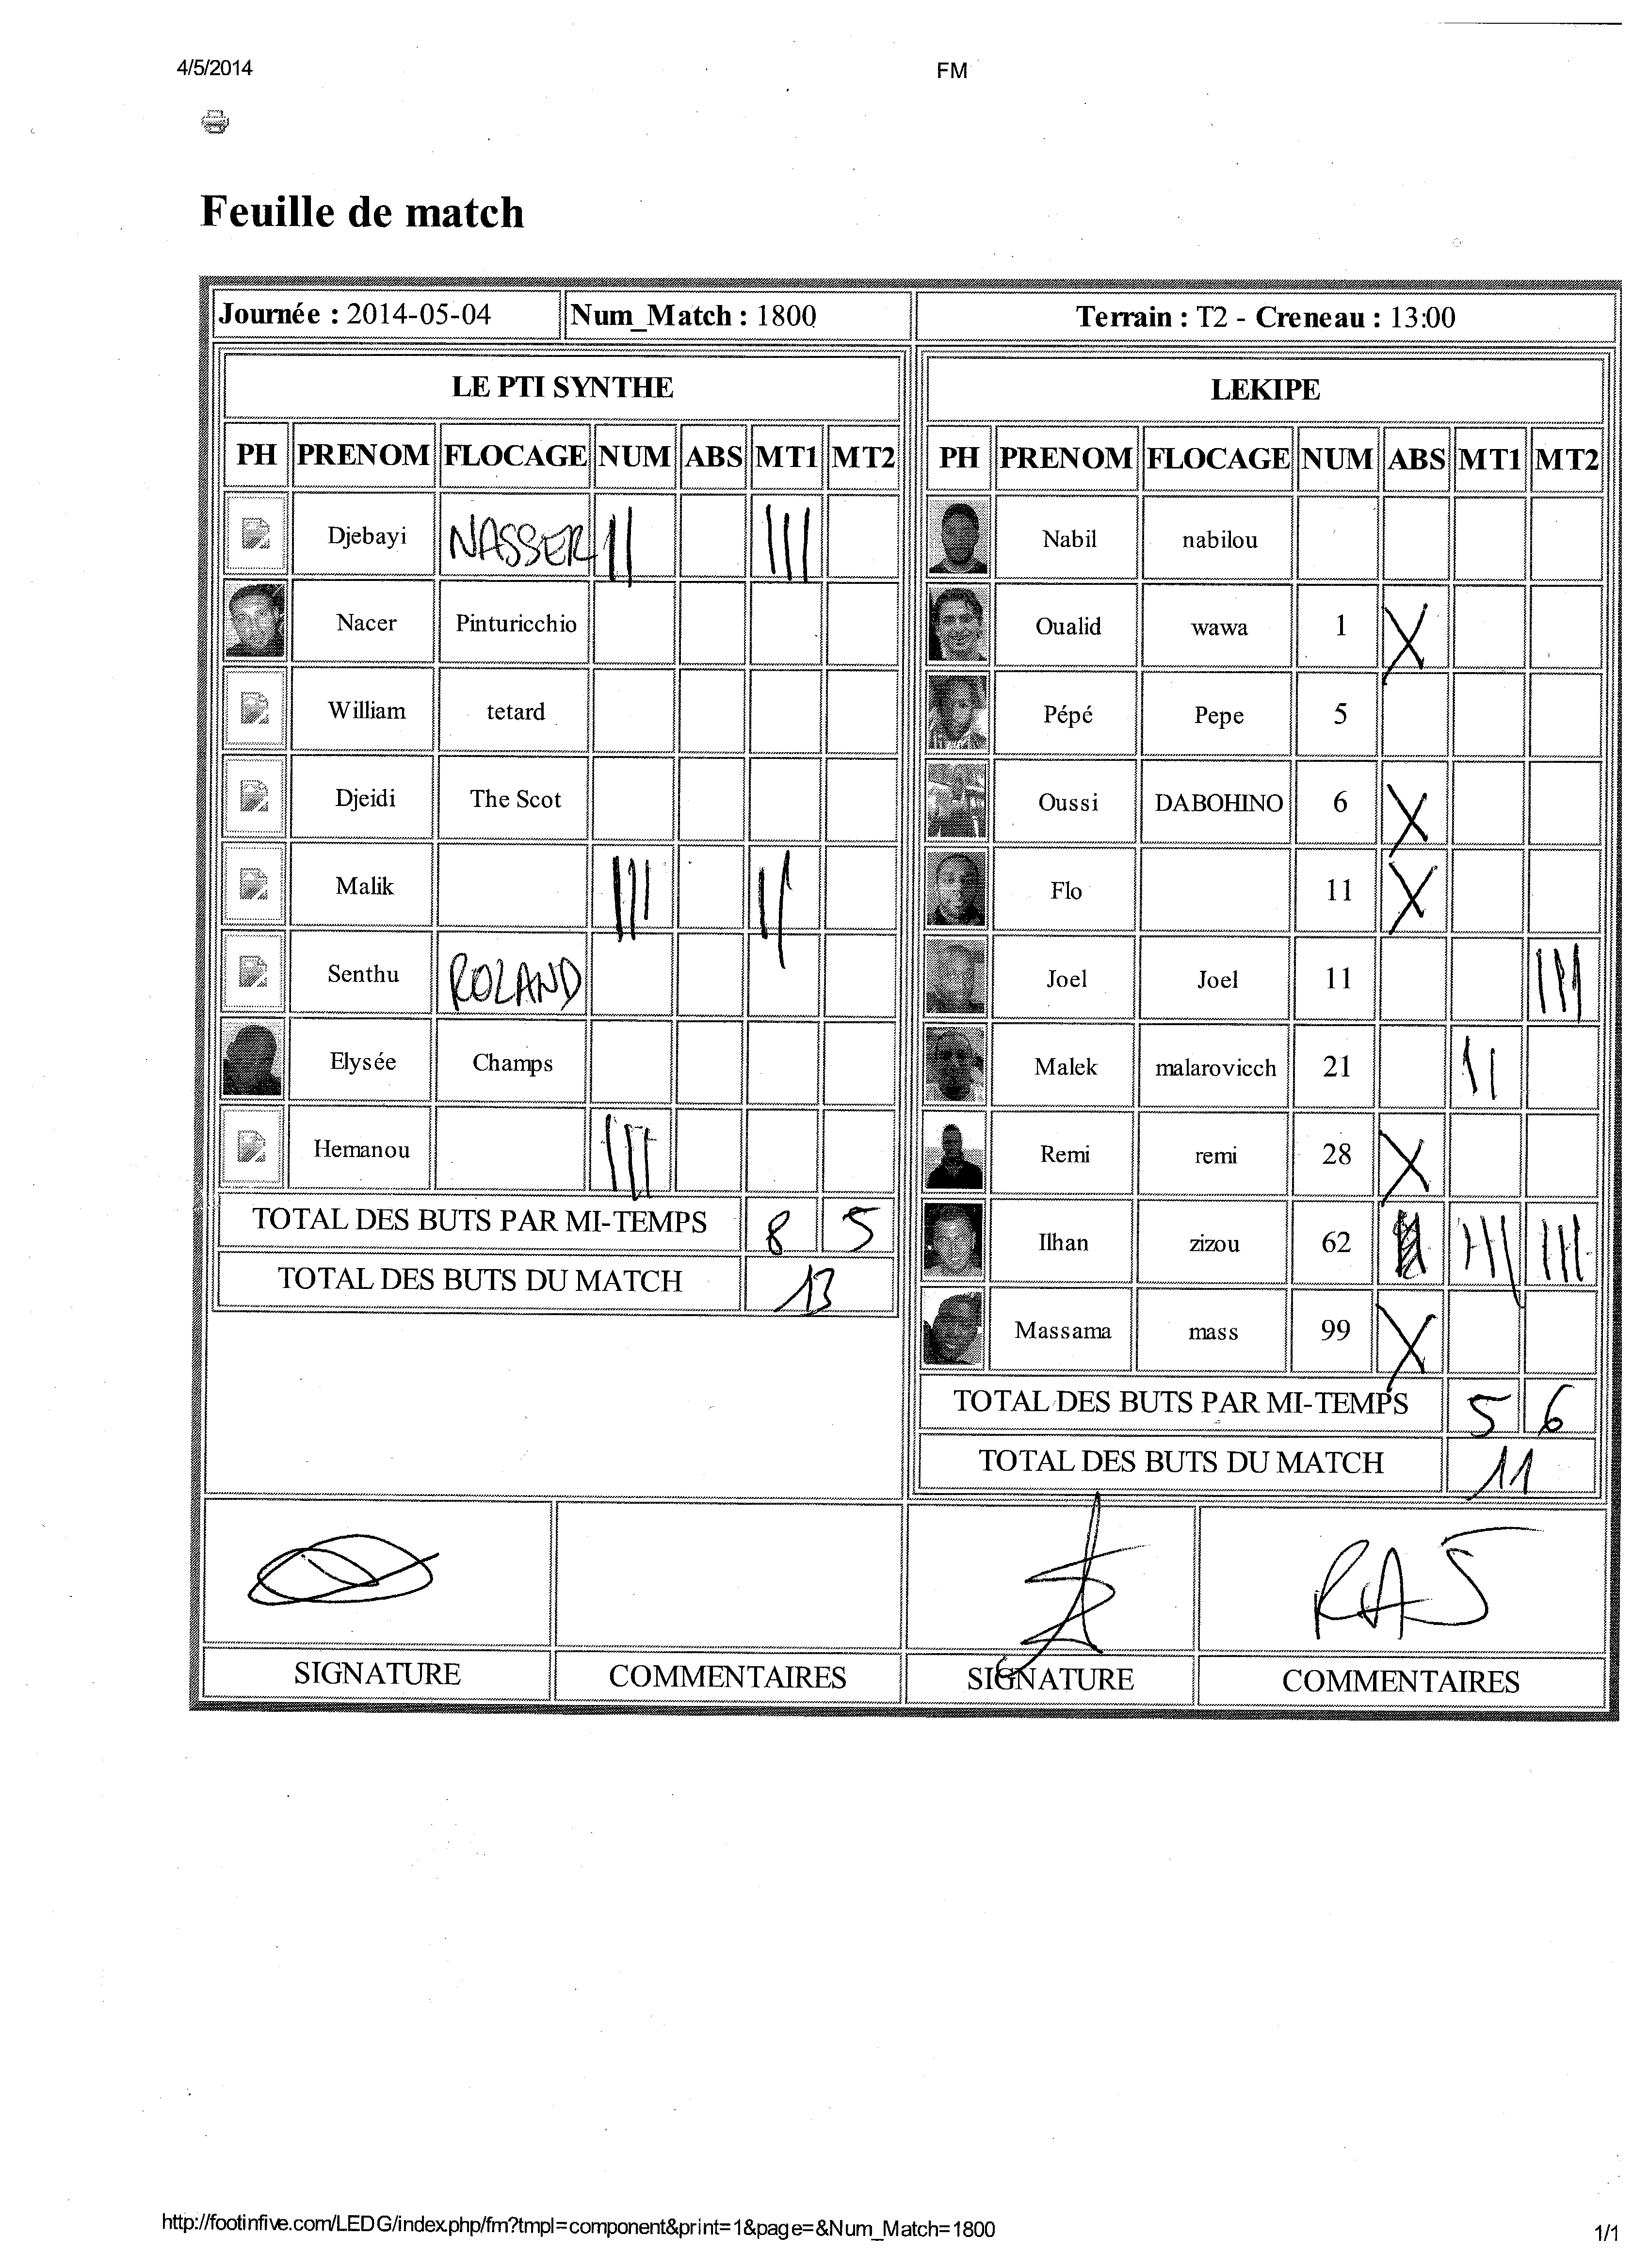 4/5/2014 FM
Feuille de match
Journée : 2014-05-04 Num_Match : 1800 Terrain : T2 - Creneau : 13:00
LE PTI SYNTHE
PH PRENOM FLOCAGE NUM ABS MT1 MT2
Djebayi NASSER || |||
Nacer Pinturicchio
William tetard
Djeidi The Scot
Malik ||| ||
Senthu ROLAND
Elysée Champs
Hemanou |||
TOTAL DES BUTS PAR MI-TEMPS 8 5
TOTAL DES BUTS DU MATCH 13
LEKIPE
PH PRENOM FLOCAGE NUM ABS MT1 MT2
Nabil nabilou
Oualid wawa 1 X
Pépé Pepe 5
Oussi DABOHINO 6 X
Flo 11 X
Joel Joel 11 |||
Malek malarovicch 21 ||
Remi remi 28 X
Ilhan zizou 62 ||| |||
Massama mass 99 X
TOTAL DES BUTS PAR MI-TEMPS 5 6
TOTAL DES BUTS DU MATCH 11
RAS
SIGNATURE COMMENTAIRES SIGNATURE COMMENTAIRES
http://footinfive.com/LEDG/index.php/fm?tmpl=component&print=1&page=&Num_Match=1800 1/1